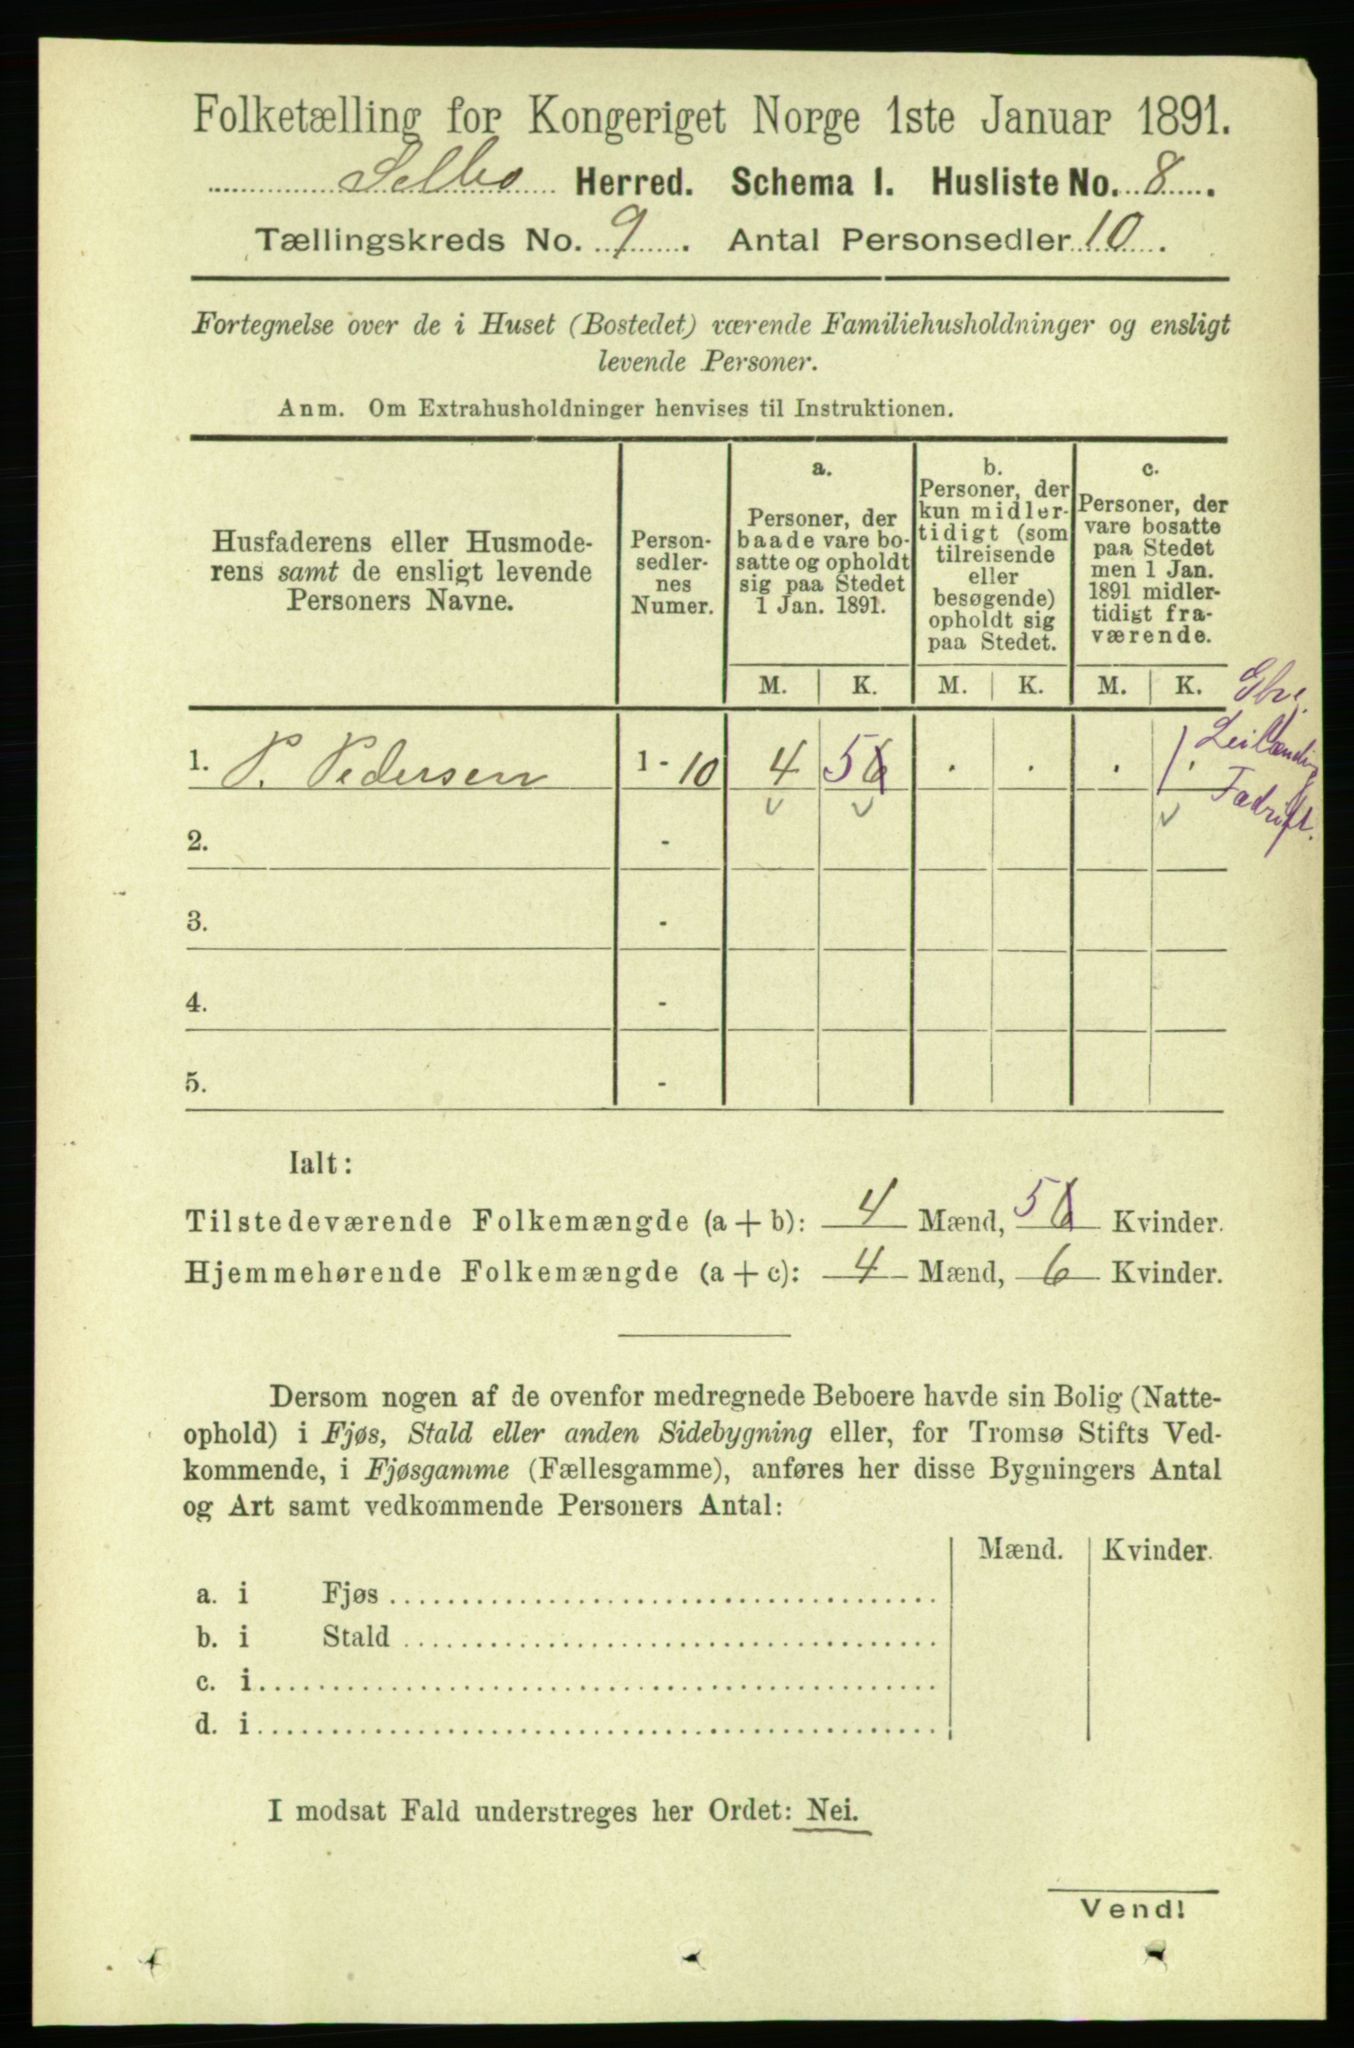 Folketælling for Kongeriget Norge 1ste Januar 1891.
Selbo Herred. Schema I. Husliste No. 8.
Tællingskreds No. 9. Antal Personsedler 10.
Fortegnelse over de i Huset (Bostedet) værende Familiehusholdninger og ensligt
levende Personer.
Anm. Om Extrahusholdninger henvises til Instruktionen.
Husfaderens eller Husmode-
rens samt de ensligt levende
Personers Navne.
Person-
sedler-
nes
Numer.
a.
Personer, der
baade vare bo-
satte og opholdt
sig paa Stedet
1 Jan. 1891.
b.
Personer, der
kun midler-
tidigt (som
tilreisende
eller
besøgende)
opholdt sig
paa Stedet.
c.
Personer, der
vare bosatte
paa Stedet
men 1 Jan.
1891 midler-
tidigt fra-
værende.
M. K. M. K. M. K.
Leilænding
Fædrift.
1. P. Pedersen 1 - 10 4 5 6 . . . 1.
2. -
3. -
4. -
5. -
Ialt:
Tilstedeværende Folkemængde (a + b): 4 Mænd, 5 6 Kvinder.
Hjemmehørende Folkemængde (a + c): 4 Mænd, 6 Kvinder.
Dersom nogen af de ovenfor medregnede Beboere havde sin Bolig (Natte-
ophold) i Fjøs, Stald eller anden Sidebygning eller, for Tromsø Stifts Ved-
kommende, i Fjøsgamme (Fællesgamme), anføres her disse Bygningers Antal
og Art samt vedkommende Personers Antal:
Mænd. Kvinder.
a. i Fjøs
b. i Stald
c. i
d. i
I modsat Fald understreges her Ordet: Nei.
Vend!